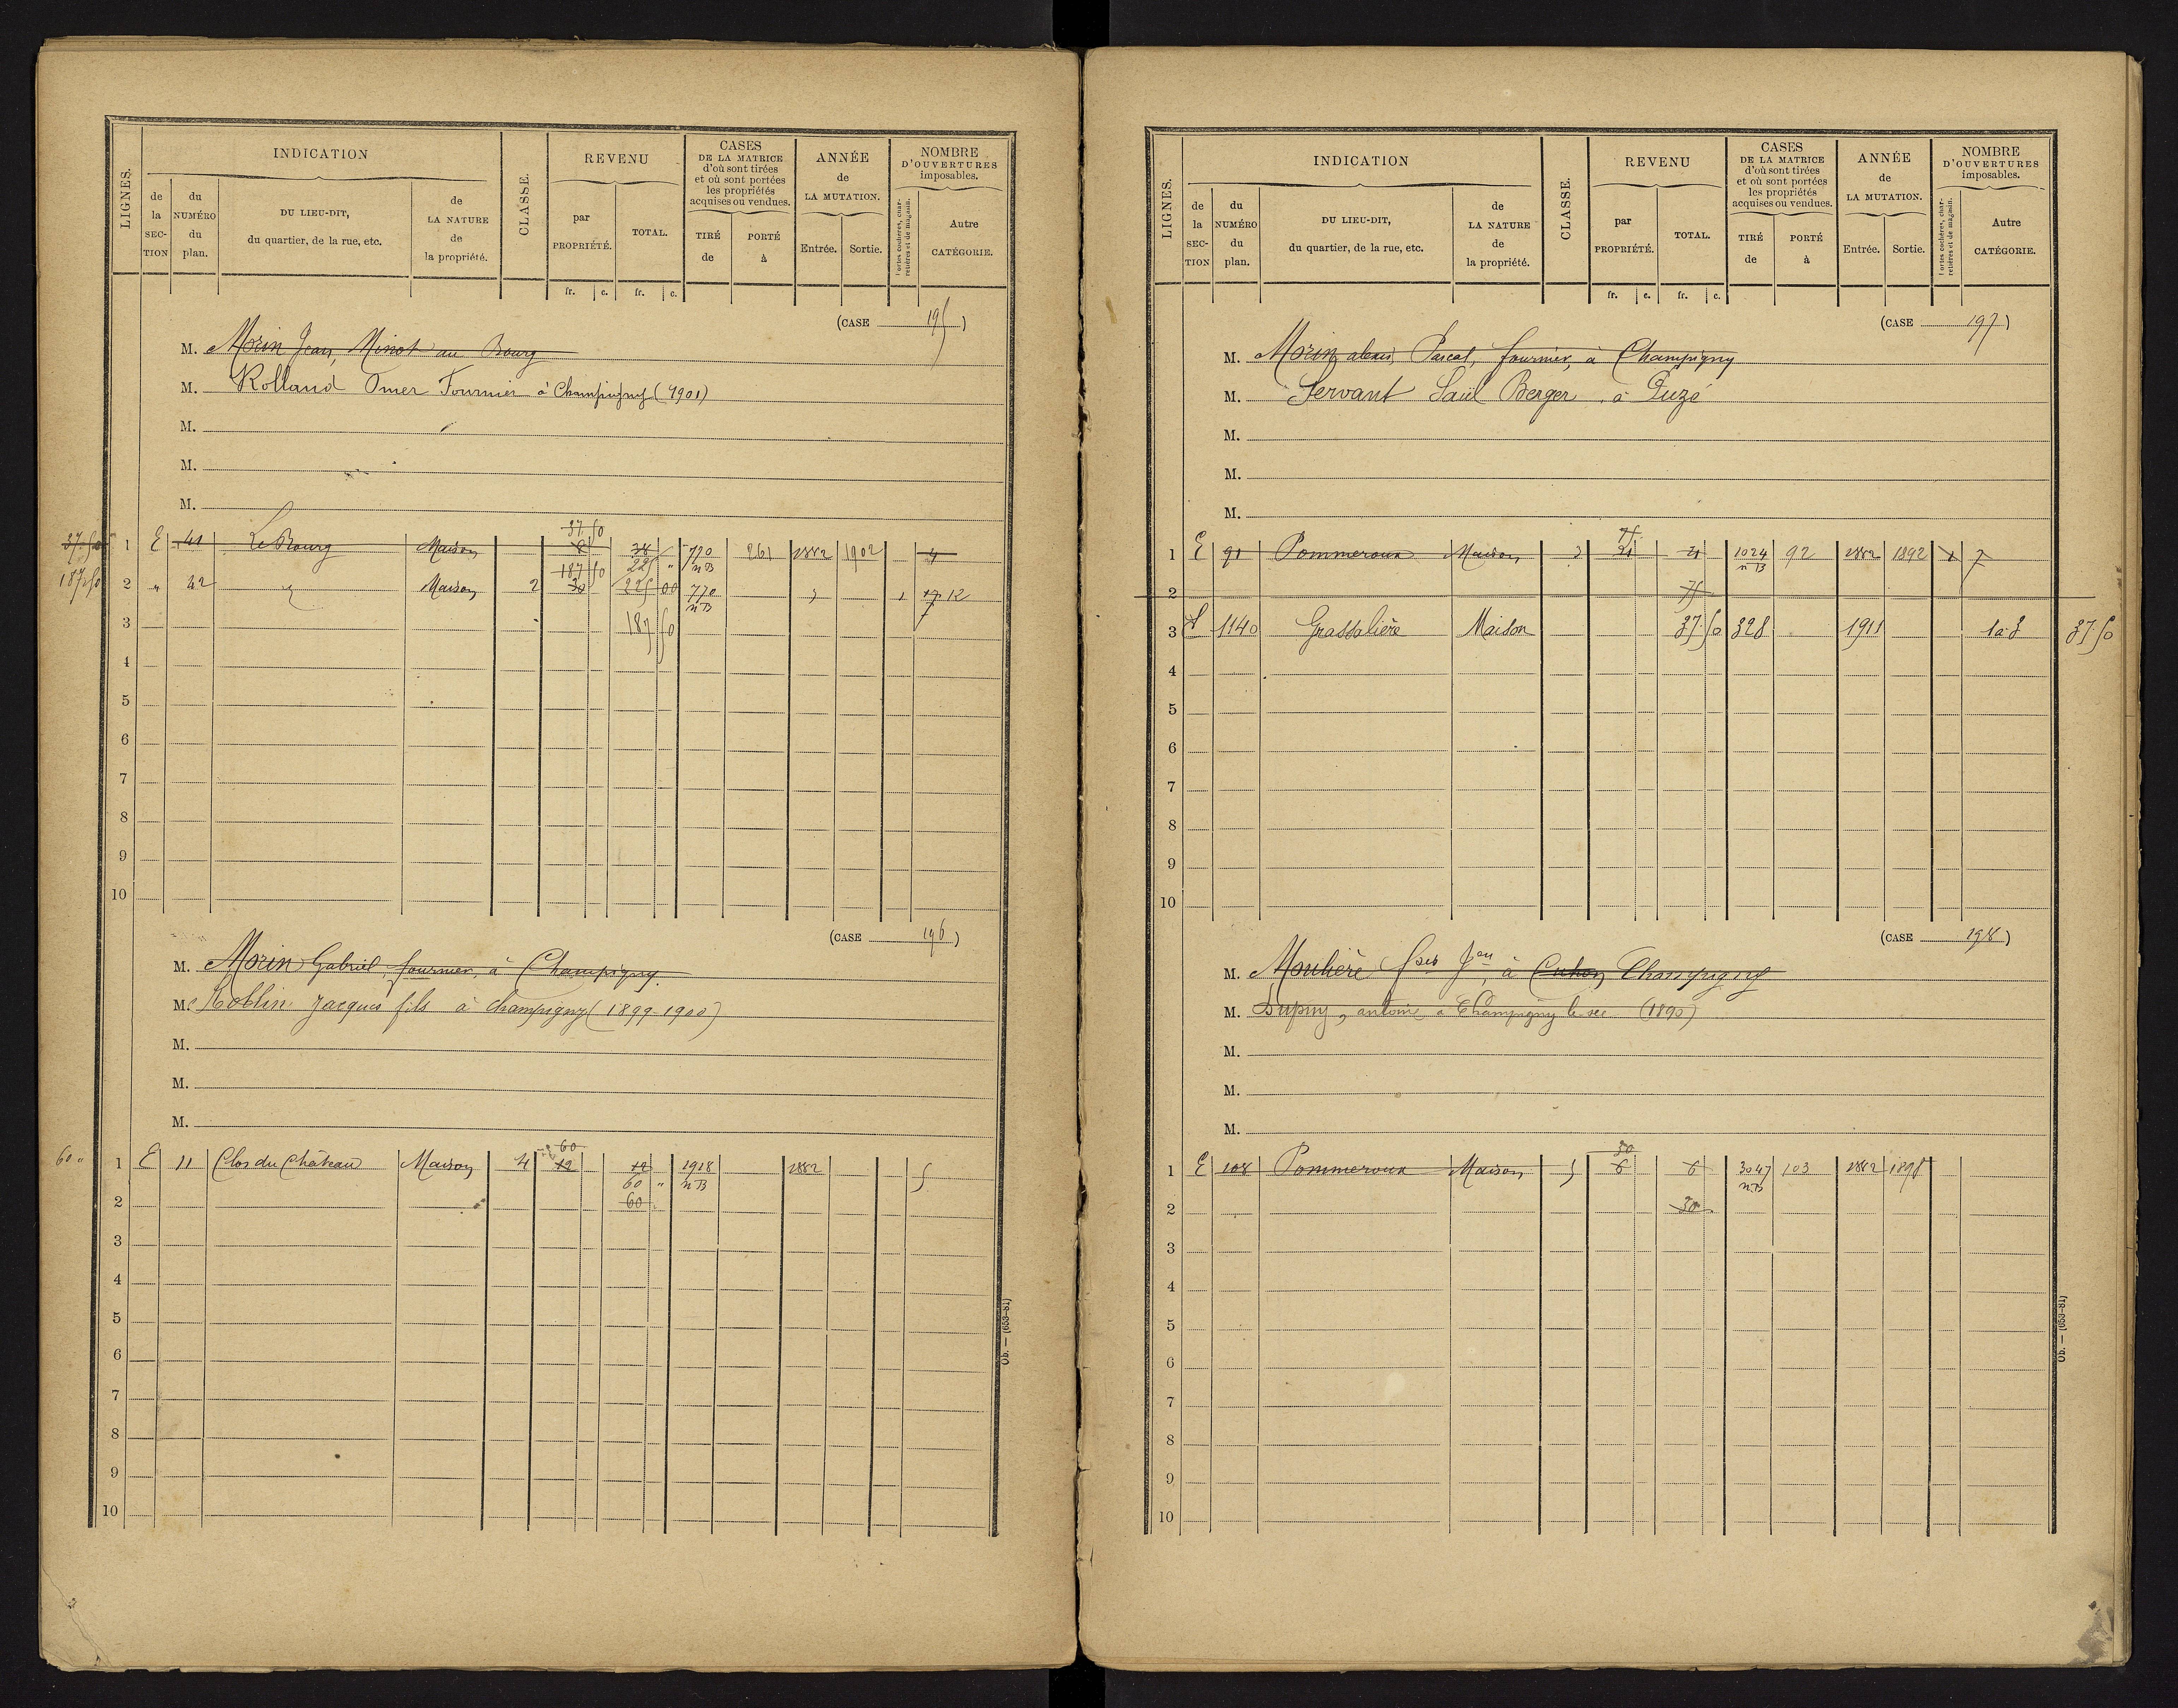 LIGNES.
INDICATION
de la SEC-TION
du NUMÉRO du plan.
DU LIEU-DIT, du quartier, de la rue, etc.
de LA NATURE de la propriété.
CLASSE.
REVENU
par PROPRIÉTÉ.
TOTAL.
fr. c. fr. c.
CASES DE LA MATRICE d'où sont tirées et où sont portées les propriétés acquises ou vendues.
TIRÉ de
PORTÉ à
ANNÉE de LA MUTATION.
Entrée. Sortie.
NOMBRE D'OUVERTURES imposables.
Portes cochères, charretières et de magasin.
Autre CATÉGORIE.
(CASE 195)
M. Morin Jean, Minot au Bourg
M. Rolland Omer Fournier à Champigny (1901)
M.
M.
M.
37 50
37.50 1 E 41 Le Bourg Maison 8 38 770 nB 261 1882 1902 4
187 50 225 "
187.50 2 " 42 " Maison 2 30 225 00 770 nB " 1 17 12
3 187 50 7
4
5
6
7
8
9
10
(CASE 196)
M. Morin Gabriel, fournier, à Champigny
M. Roblin Jacques fils à Champigny (1899-1900)
M.
M.
M.
60
60 " 1 E 11 Clos du Château Maison 4 12 12 1918 nB 1882 5
60 "
2 60
3
4
5
6
7
8
9
10
Ob. — (653-81)
LIGNES.
INDICATION
de la SEC-TION
du NUMÉRO du plan.
DU LIEU-DIT, du quartier, de la rue, etc.
de LA NATURE de la propriété.
CLASSE.
REVENU
par PROPRIÉTÉ.
TOTAL.
fr. c. fr. c.
CASES DE LA MATRICE d'où sont tirées et où sont portées les propriétés acquises ou vendues.
TIRÉ de
PORTÉ à
ANNÉE de LA MUTATION.
Entrée. Sortie.
NOMBRE D'OUVERTURES imposables.
Portes cochères, charretières et de magasin.
Autre CATÉGORIE.
(CASE 197)
M. Morin alexis Pascal, fournier, à Champigny
M. Servant Saül Berger à Guzé
M.
M.
M.
75
1 E 91 Pommeroux Maison 3 21 21 1024 nB 92 1882 1892 1 7
2 75
3 1140 Grassalière Maison 37.50 328 1911 1 à 3 37.50
4
5
6
7
8
9
10
(CASE 198)
M. Moulière à Cuhon Champigny
M. Dupuy, antoine à Champigny le sec (1890)
M.
M.
M.
30
1 E 108 Pommeroux Maison 5 6 6 3047 nB 103 1882 1898
2 30
3
4
5
6
7
8
9
10
Ob. — (653-81)